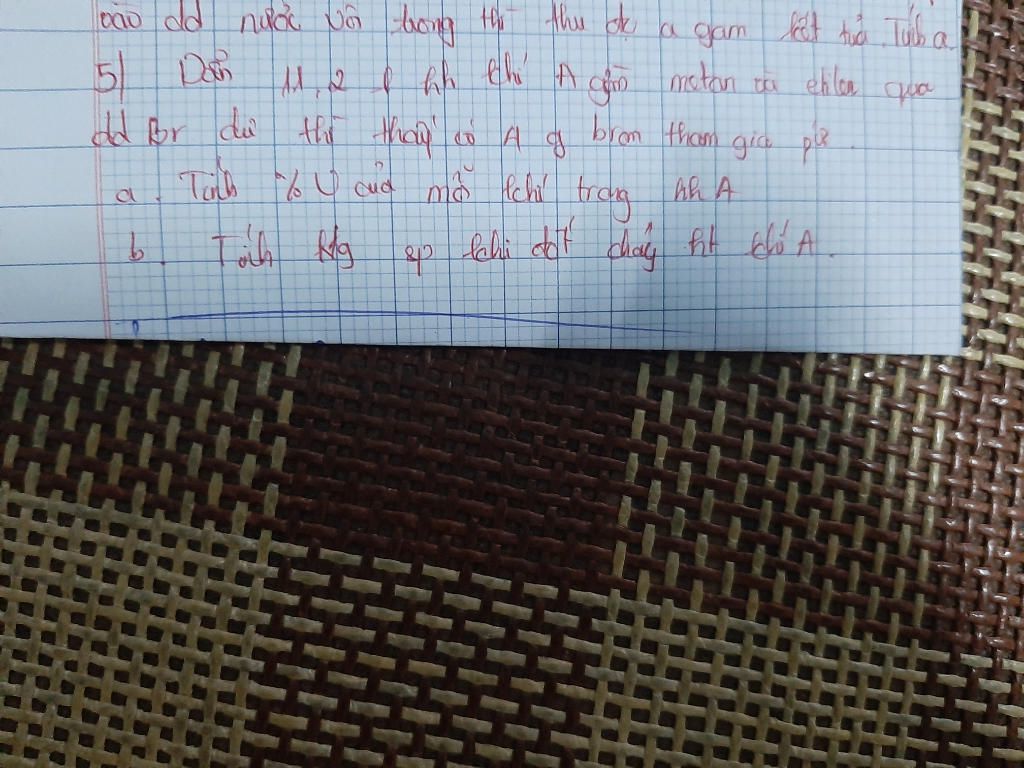 vào dd nước vôi trong thì thu đc a gam kết tủa. Tính a
5) Dẫn 11,2 l hh khí A gồm metan và etilen qua
dd Br dư thì thấy có A g brom tham gia pứ.
a. Tính % V của mỗi khí trong hh A
b. Tính Klg sp khi đốt cháy ht khí A.